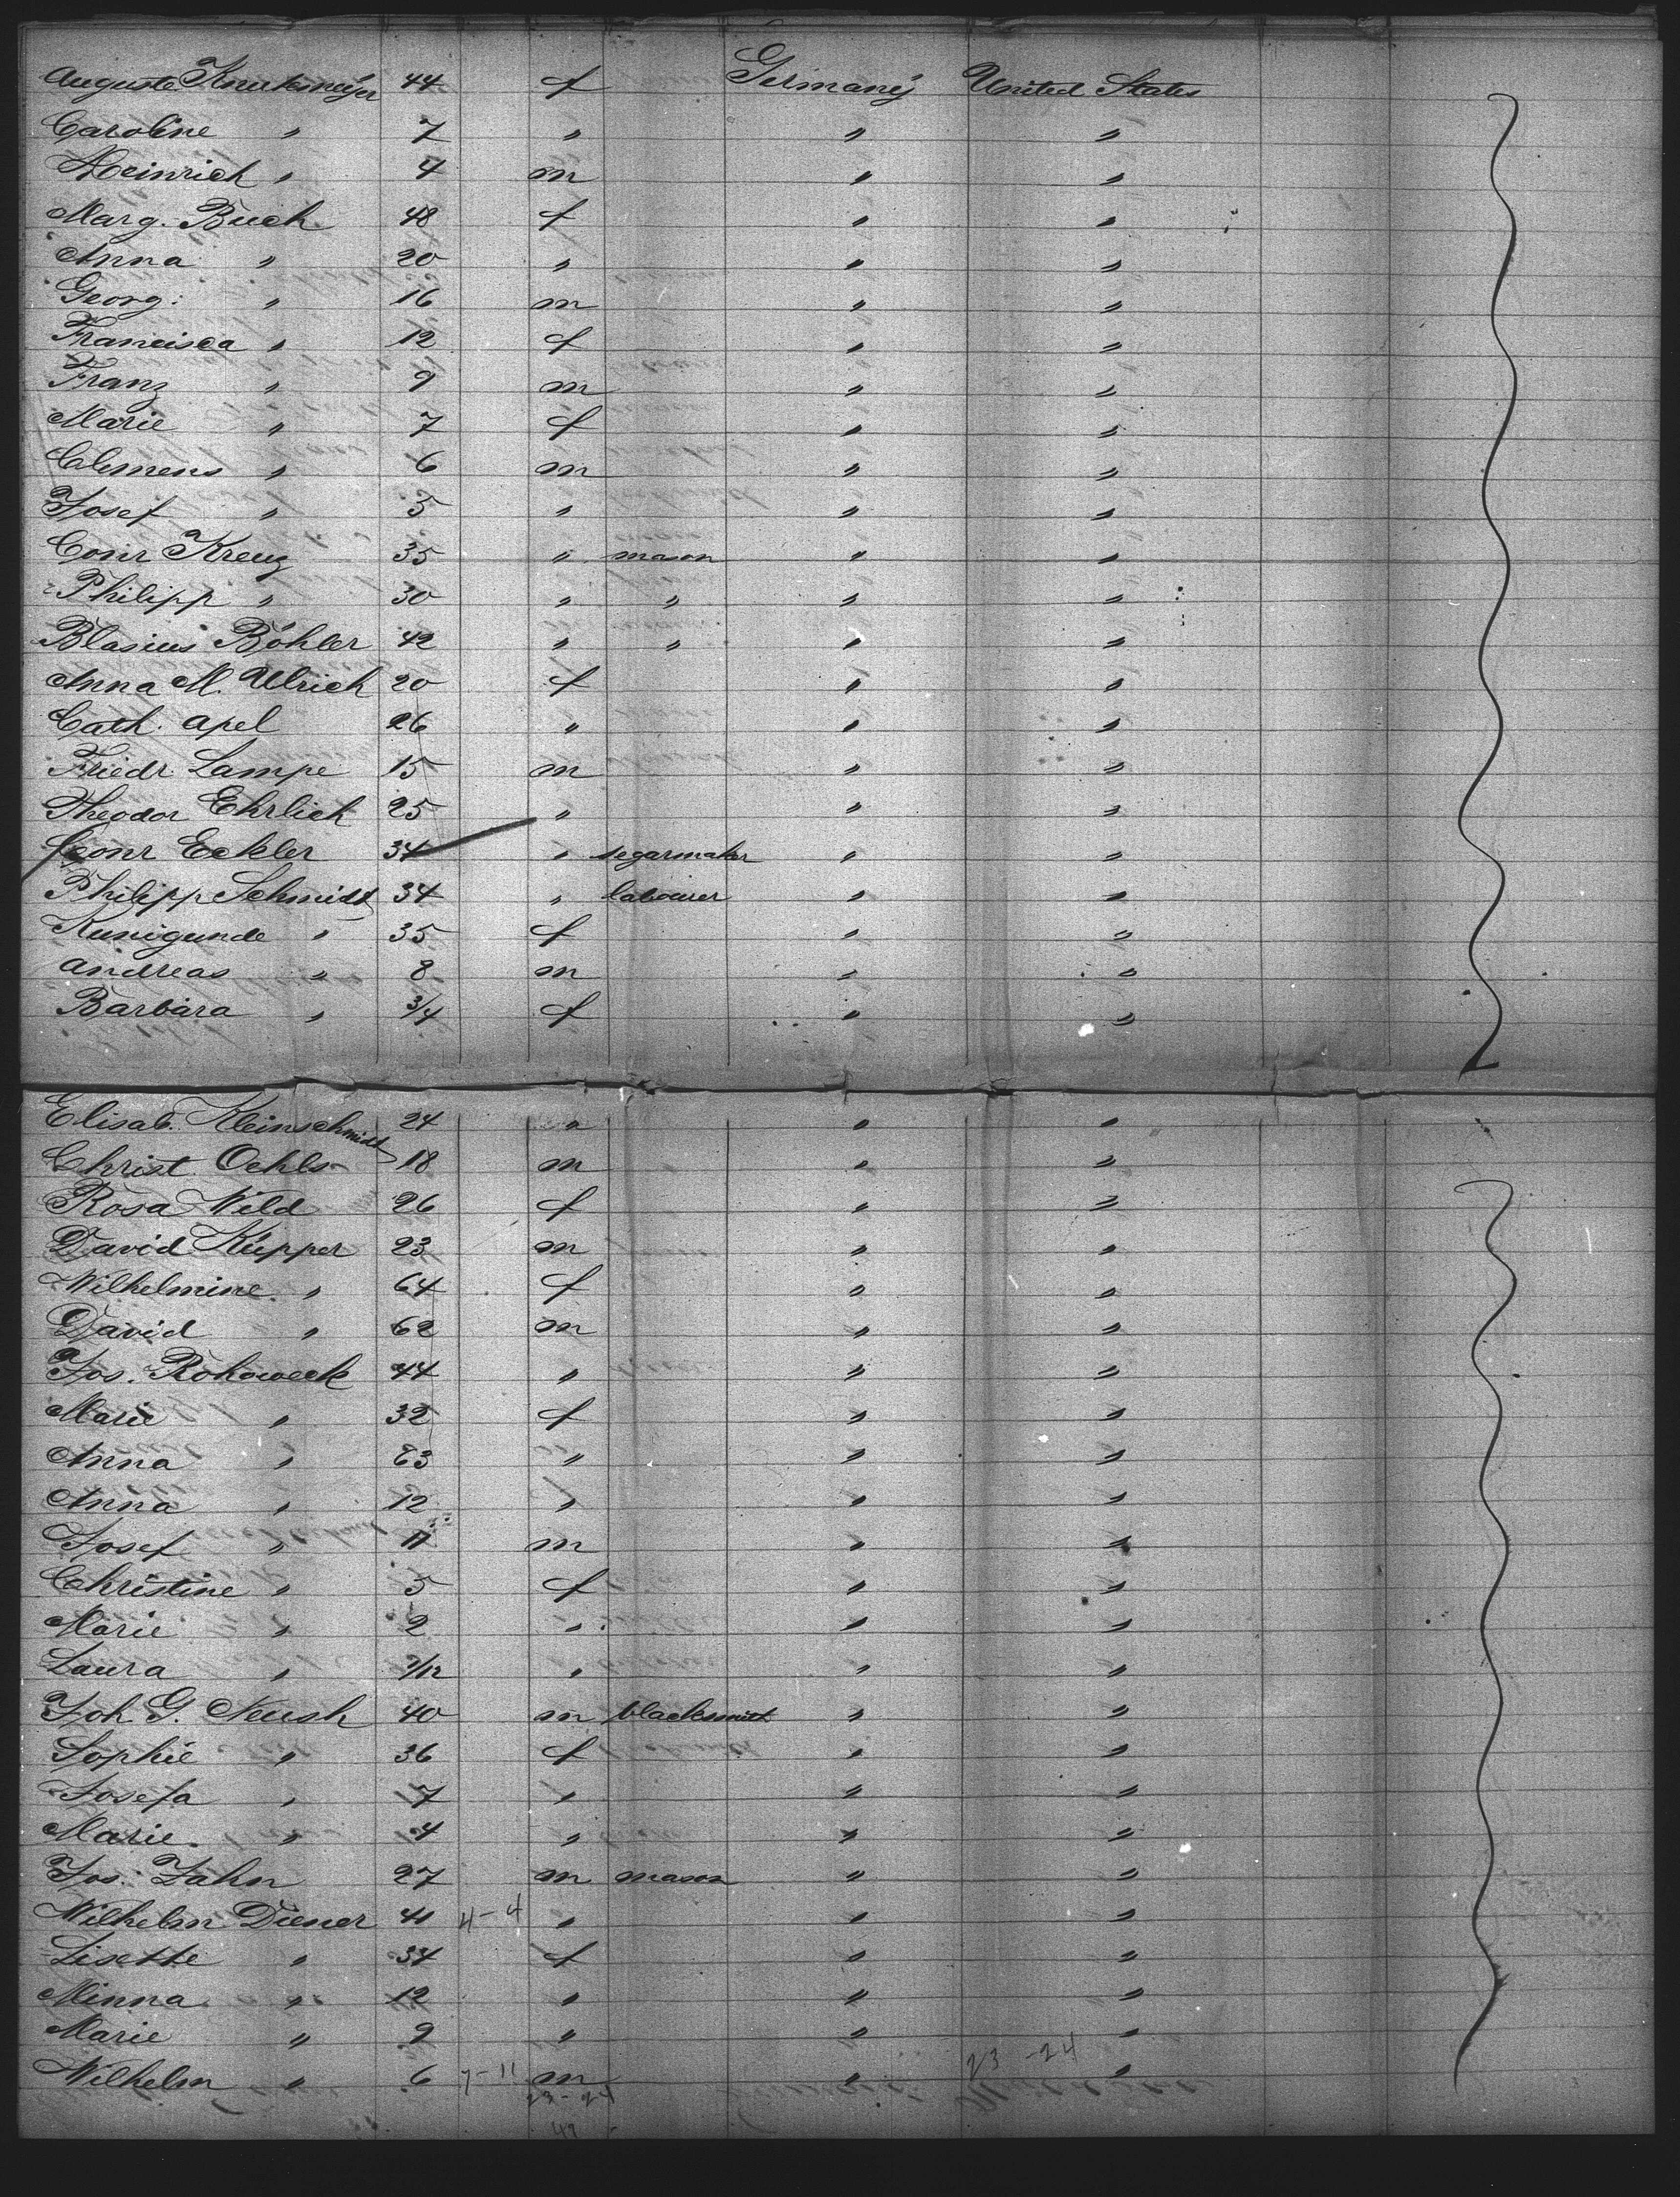 Auguste Knutemeÿer 44 f Germany United States
Caroline " 7 " " "
Heinrich " 4 m " "
Marg. Buch 48 f " "
Anna " 20 " " "
Georg: " 16 m " "
Francisca " 12 f " "
Franz " 9 m " "
Marie " 7 f " "
Clemens " 6 m " "
Josef " 5 " " "
Conr Kreuz 35 " mason " "
Philipp " 30 " " " "
Blasius Böhler 42 " " " "
Anna M. Ulrich 20 f " "
Cath. Apel 26 " " "
Friedr. Lampe 15 m " "
Theodor Ehrlich 25 " " "
Conr Eckler 34 " segarmaker " "
Philipp Schmidt 34 " labourer " "
Kunigunde " 35 f " "
Andreas " 8 m " "
Barbara " 3/4 f " "
Elisab. Kleinschmidt 24 " " "
Christ. Oehls 18 m " "
Rosa Wild 26 f " "
David Küpper 23 m " "
Wilhelmine " 64 f " "
David " 62 m " "
Jos. Rohoweck 44 " " "
Marie " 32 f " "
Anna " 63 " " "
Anna " 12 " " "
Josef " 11 m " "
Christine " 5 f " "
Marie " 2 " " "
Laura " /12 " " "
Joh. G. Neush 40 m blacksmith " "
Sophie " 36 f " "
Josefa " 7 " " "
Marie " 4 " " "
Jos. Zahn 27 m mason " "
Wilhelm Diener 41 4-4 " " "
Lisette " 34 f " "
Minna " 12 " " "
Marie " 9 " " "
Wilhelm " 6 7-11 m " 23-24 "
23-24
49